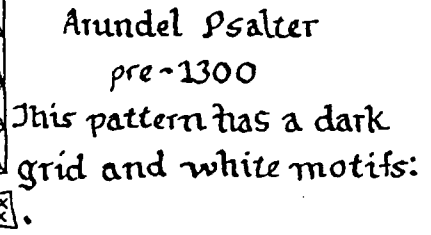 Arundel Psalter
pre-1300
This pattern has a dark
grid and white motifs:
.